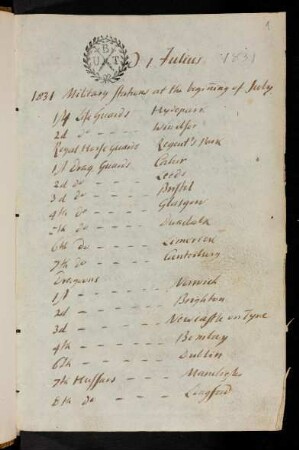 B
U T
1. Julius. 1831
1831 Military Stations at the begin̄ing of July
1st Life Guards Hydepark
2d do — Windsor
Royal Horse Guards Regent's Park
1st Drag. Guards Cahir
2d do — — Leeds
3d do — — Bristol
4th do — — Glasgow
5th do — — Dundalk
6th do — — Limerick
7th do — — Canterbury
Dragoons
1st — — — — Norwich
2d — — — — Brighton
3d — — — — Newcastle on Tyne
4th — — — — Bombay
6th — — — — Dublin
7th Hussars — — — Manchester
8th do — — — Longford